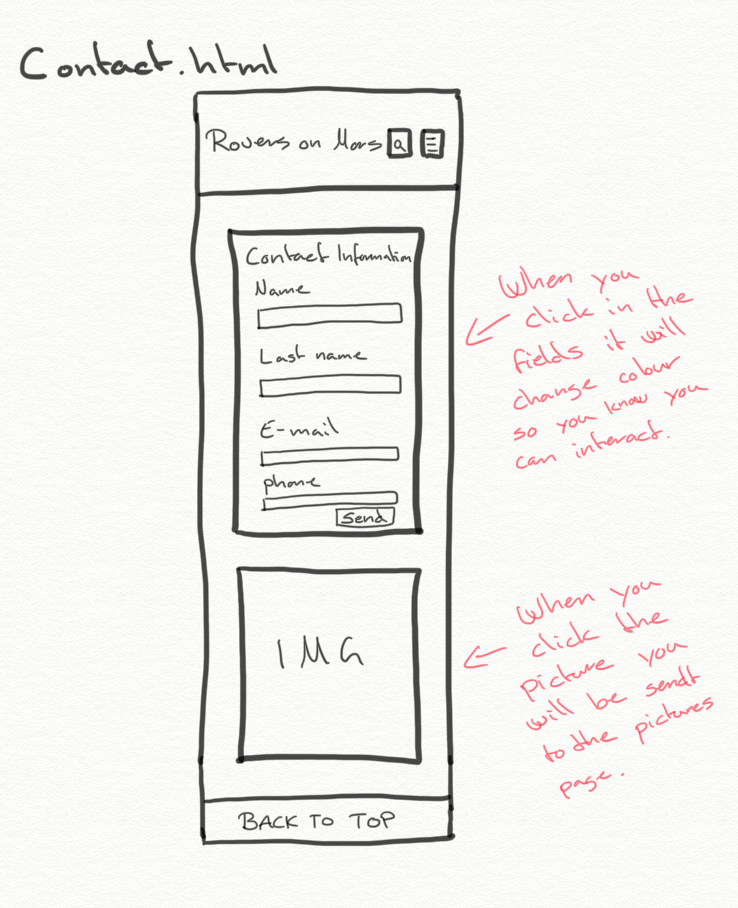 Contact.html
Rovers on Mars
Contact Information
Name
Last name
E-mail
phone
Send
When you
click in the
fields it will
change colour
so you know you
can interact.
IMG
When you
click the
picture you
will be sendt
to the pictures
page.
BACK TO TOP